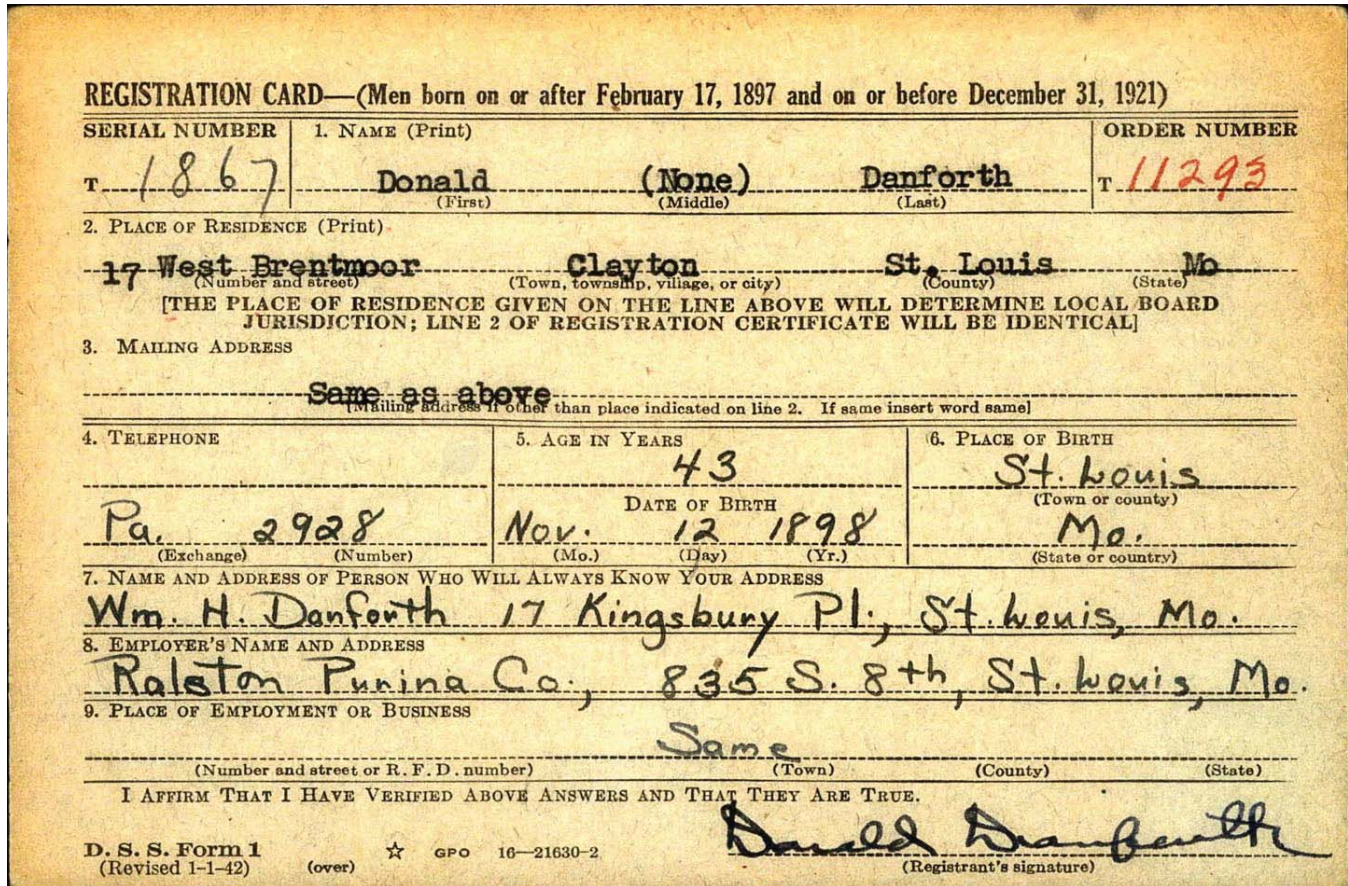 REGISTRATION CARD—(Men born on or after February 17, 1897 and on or before December 31, 1921)
SERIAL NUMBER 1. NAME (Print) ORDER NUMBER
T 1867 Donald (None) Danforth T 11293
(First) (Middle) (Last)
2. PLACE OF RESIDENCE (Print)
17 West Brentmoor Clayton St. Louis Mo
(Number and street) (Town, township, village, or city) (County) (State)
[THE PLACE OF RESIDENCE GIVEN ON THE LINE ABOVE WILL DETERMINE LOCAL BOARD
JURISDICTION; LINE 2 OF REGISTRATION CERTIFICATE WILL BE IDENTICAL]
3. MAILING ADDRESS
Same as above
[Mailing address if other than place indicated on line 2. If same insert word same]
4. TELEPHONE 5. AGE IN YEARS 6. PLACE OF BIRTH
43 St. Louis
DATE OF BIRTH (Town or county)
Pa. 2928 Nov. 12 1898 Mo.
(Exchange) (Number) (Mo.) (Day) (Yr.) (State or country)
7. NAME AND ADDRESS OF PERSON WHO WILL ALWAYS KNOW YOUR ADDRESS
Wm. H. Danforth 17 Kingsbury Pl., St. Louis, Mo.
8. EMPLOYER'S NAME AND ADDRESS
Ralston Purina Co., 835 S. 8th, St. Louis, Mo.
9. PLACE OF EMPLOYMENT OR BUSINESS
Same
(Number and street or R. F. D. number) (Town) (County) (State)
I AFFIRM THAT I HAVE VERIFIED ABOVE ANSWERS AND THAT THEY ARE TRUE.
Donald Danforth
D. S. S. Form 1 ☆ GPO 16—21630-2
(Revised 1-1-42) (over) (Registrant's signature)